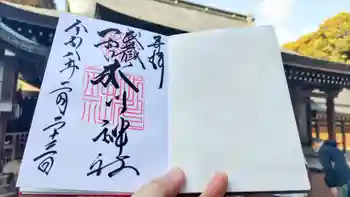 奉拝
武蔵一宮
氷川神社
令和六年二月二十三日